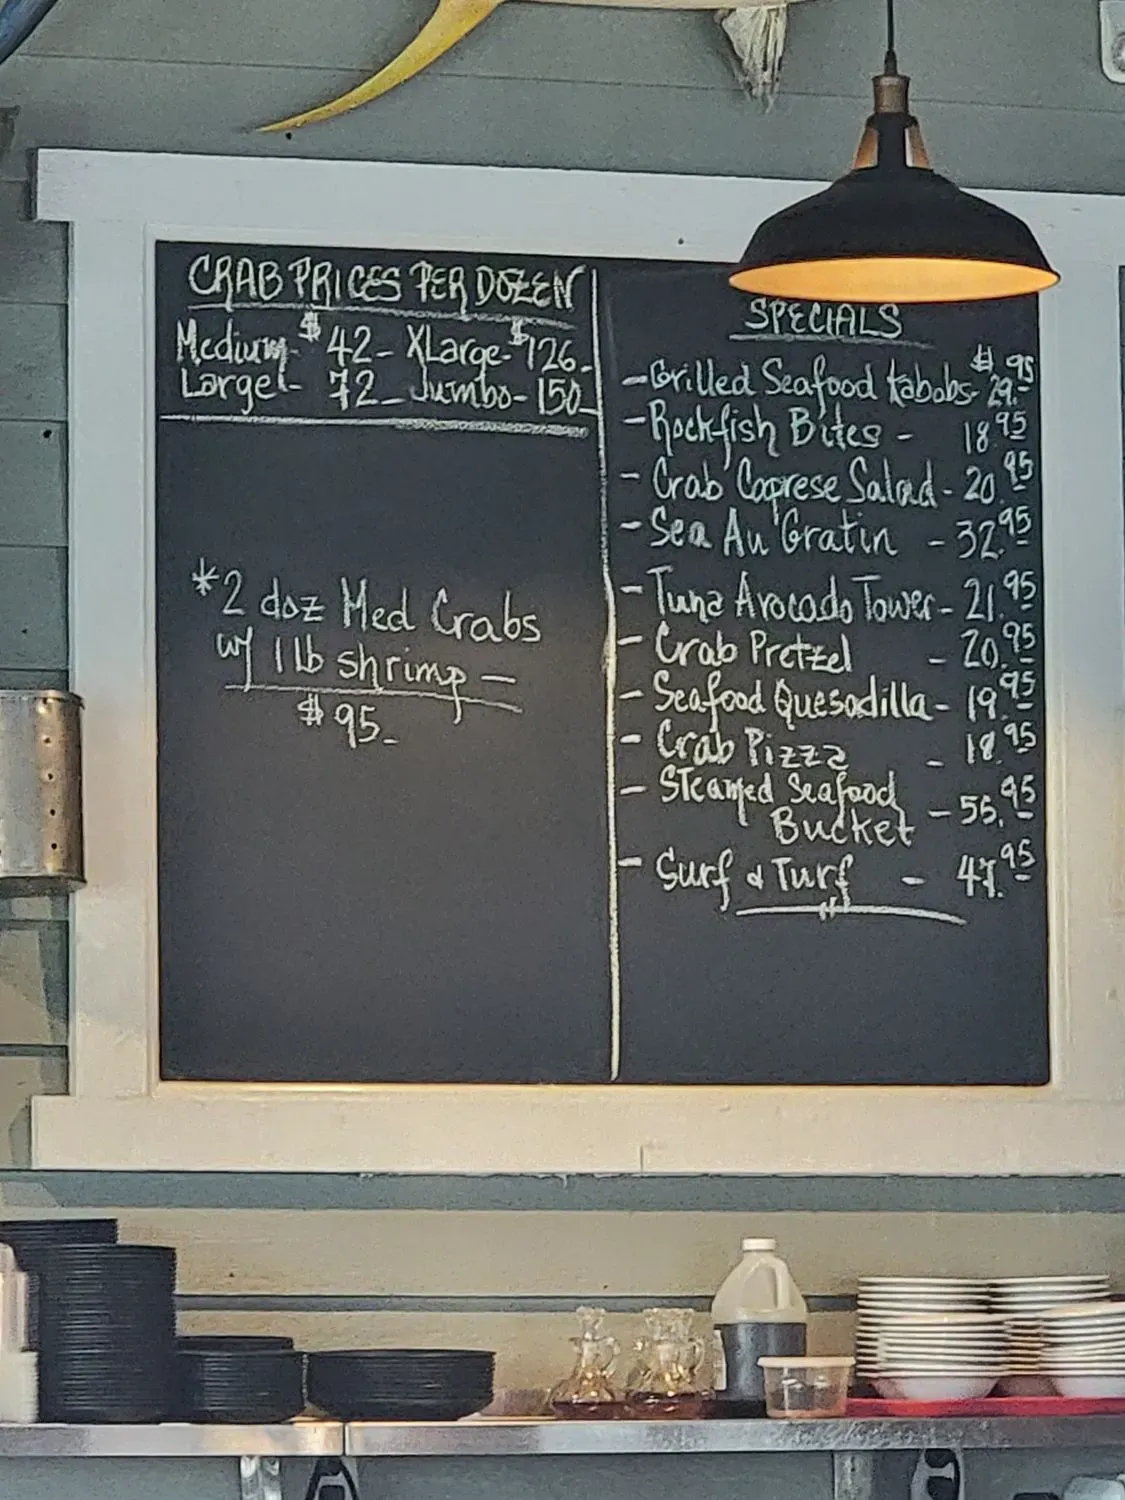 CRAB PRICES PER DOZEN
Medium- $42- XLarge- $126-
Large - 72- Jumbo- 150-
*2 doz Med Crabs
w/ 1 lb shrimp -
$95-
SPECIALS
- Grilled Seafood Kabobs- $29.95
- Rockfish Bites - 18.95
- Crab Caprese Salad - 20.95
- Sea Au Gratin - 32.95
- Tuna Avocado Tower - 21.95
- Crab Pretzel - 20.95
- Seafood Quesadilla - 19.95
- Crab Pizza - 18.95
- Steamed Seafood
Bucket - 55.95
- Surf & Turf - 47.95